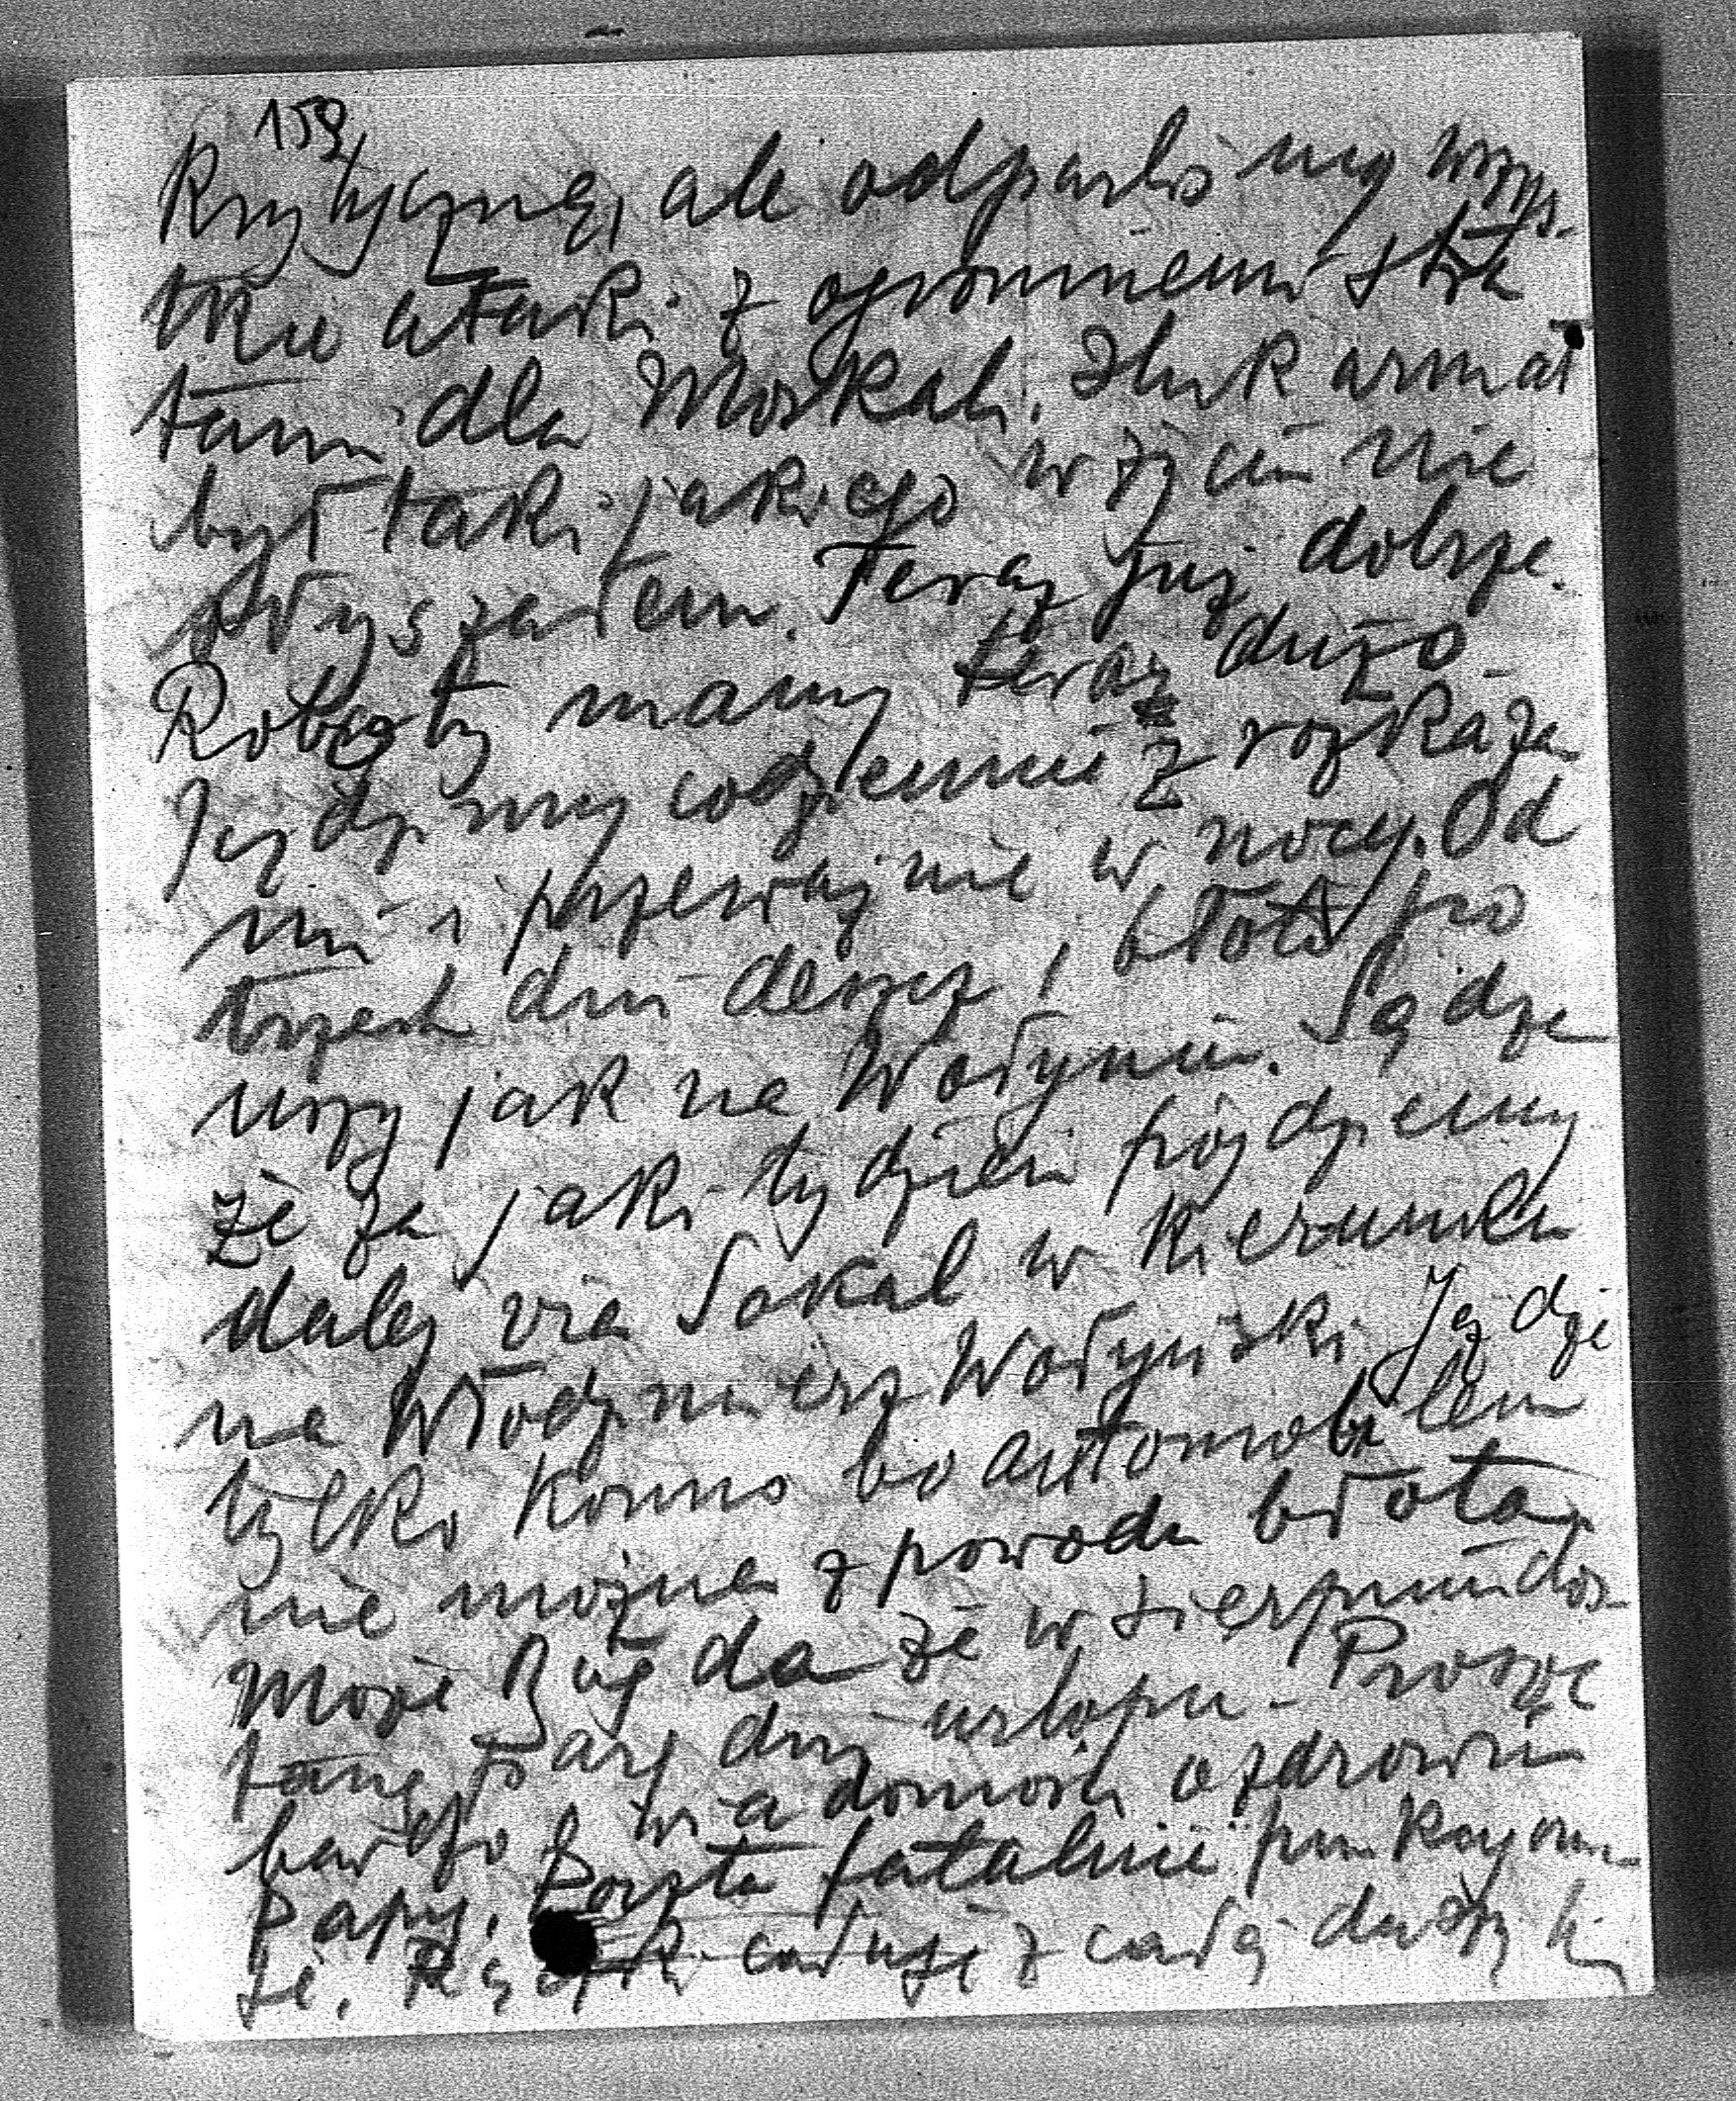 159
Krytyczne, ale odparliśmy wszys-
tkie ataki z ogromnemi stra
tami dla Moskali. Huk armat
był taki jakiego w życiu nie
słyszałem. Teraz już dobrze.
Roboty mamy teraz dużo
Jeździmy codziennie z rozkaza
mi i przeważnie w nocy. Od
trzech dni deszcz! błoto po
uszy jak na Wołyniu. Sądzę
że za jaki tydzień pójdziemy
dalej via Sokal w kierunku
na Włodzimierz Wołyński. Jeżdżę
tylko konno bo automobilem
nie można z powodu błota.
Może Bóg da że w sierpniu dos-
tanę parę dni urlopu - Proszę
bardzo o wiadomość o zdrowiu
Papy. Poczta fatalnie funkcyonu-
je. Rączki całuję z całej duszy